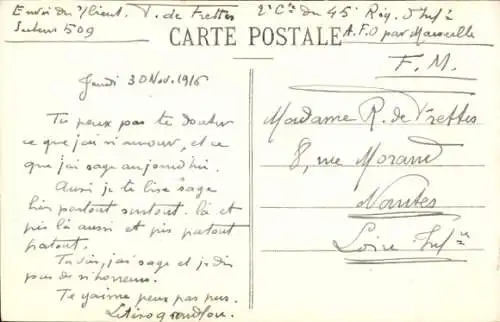 Envoi du s/Lieut. V. de Trettes 2e Cie du 45e Rég. d'Inf.ie
Secteur 509 A.F.O par Marseille
CARTE POSTALE
F. M.
Jeudi 30 Nov. 1916
Tu peux pas te douter
ce que j'ai amour, et ce
que j'ai sage aujourd'hui.
Aussi je te bise sage
bien partout surtout là et
pis là aussi et pis partout
partout.
Tu vois, j'ai sage et je dis
pas de
Te j'aime peux pas pus.
Madame R. de Trettes
8, rue Morand
Nantes
Loire Infre